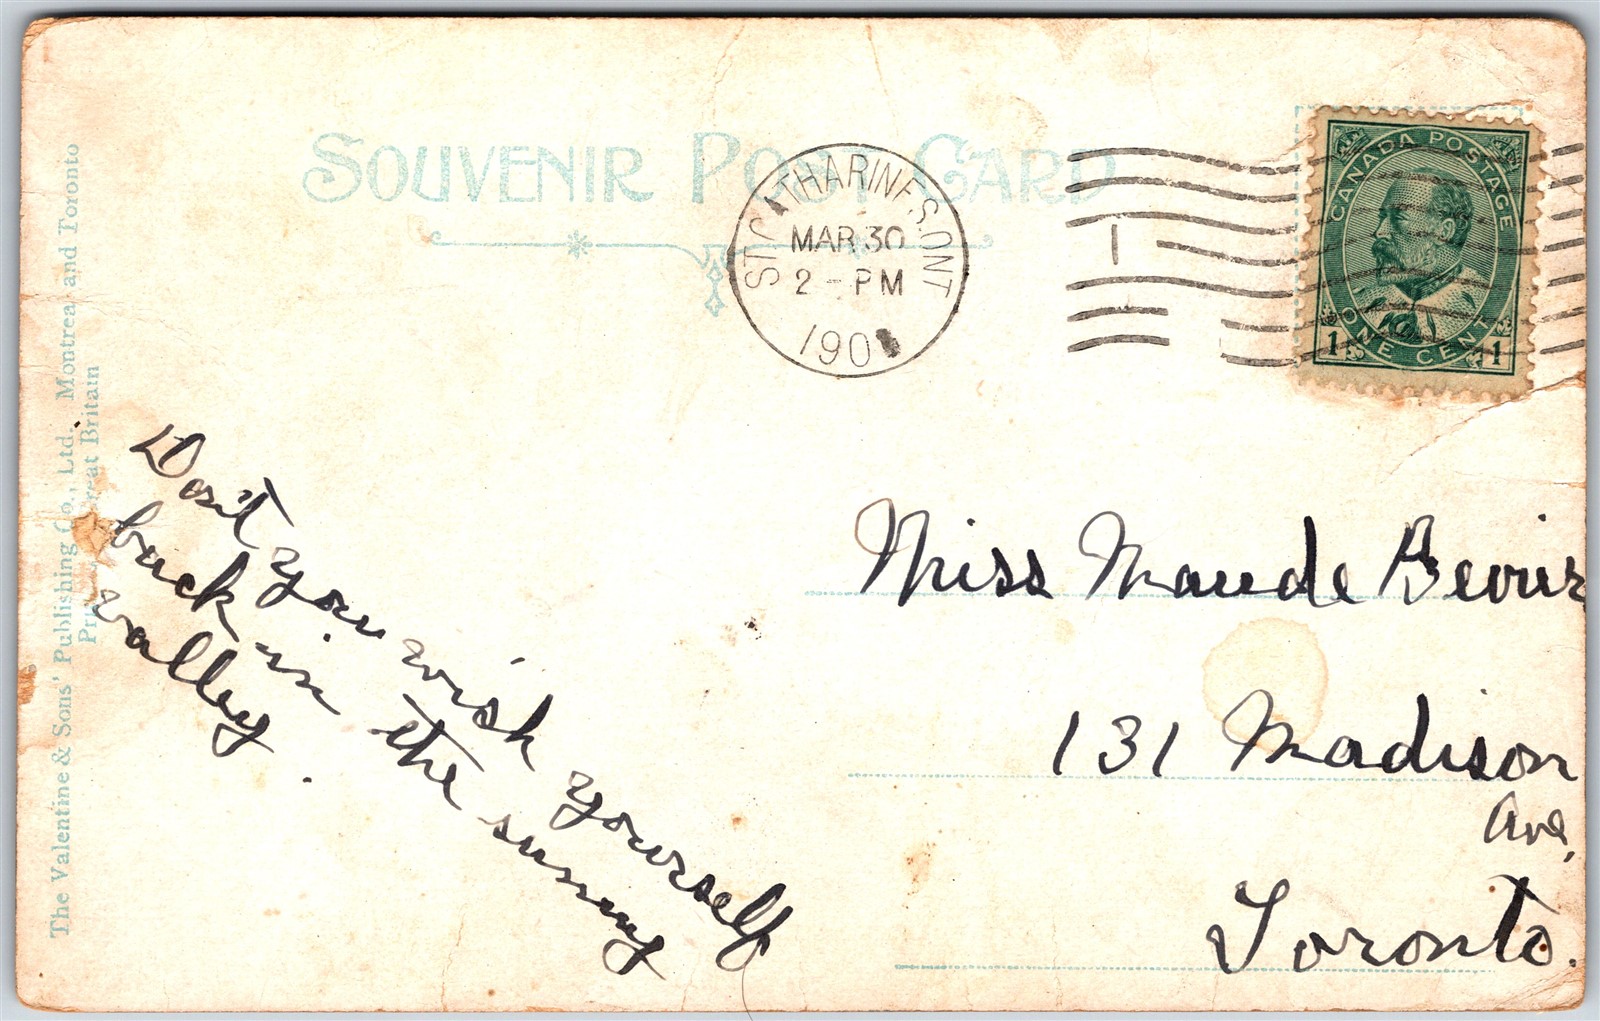 SOUVENIR POST CARD
ST. CATHARINES. ONT
MAR 30
2 - PM
190
1
CANADA POSTAGE
ONE CENT
1 1
The Valentine & Sons' Publishing Co., Ltd. Montrea and Toronto
Great Britain
Don't you wish yourself
back in the sunny
valley.
Miss Maude
131 Madison
Ave,
Toronto.